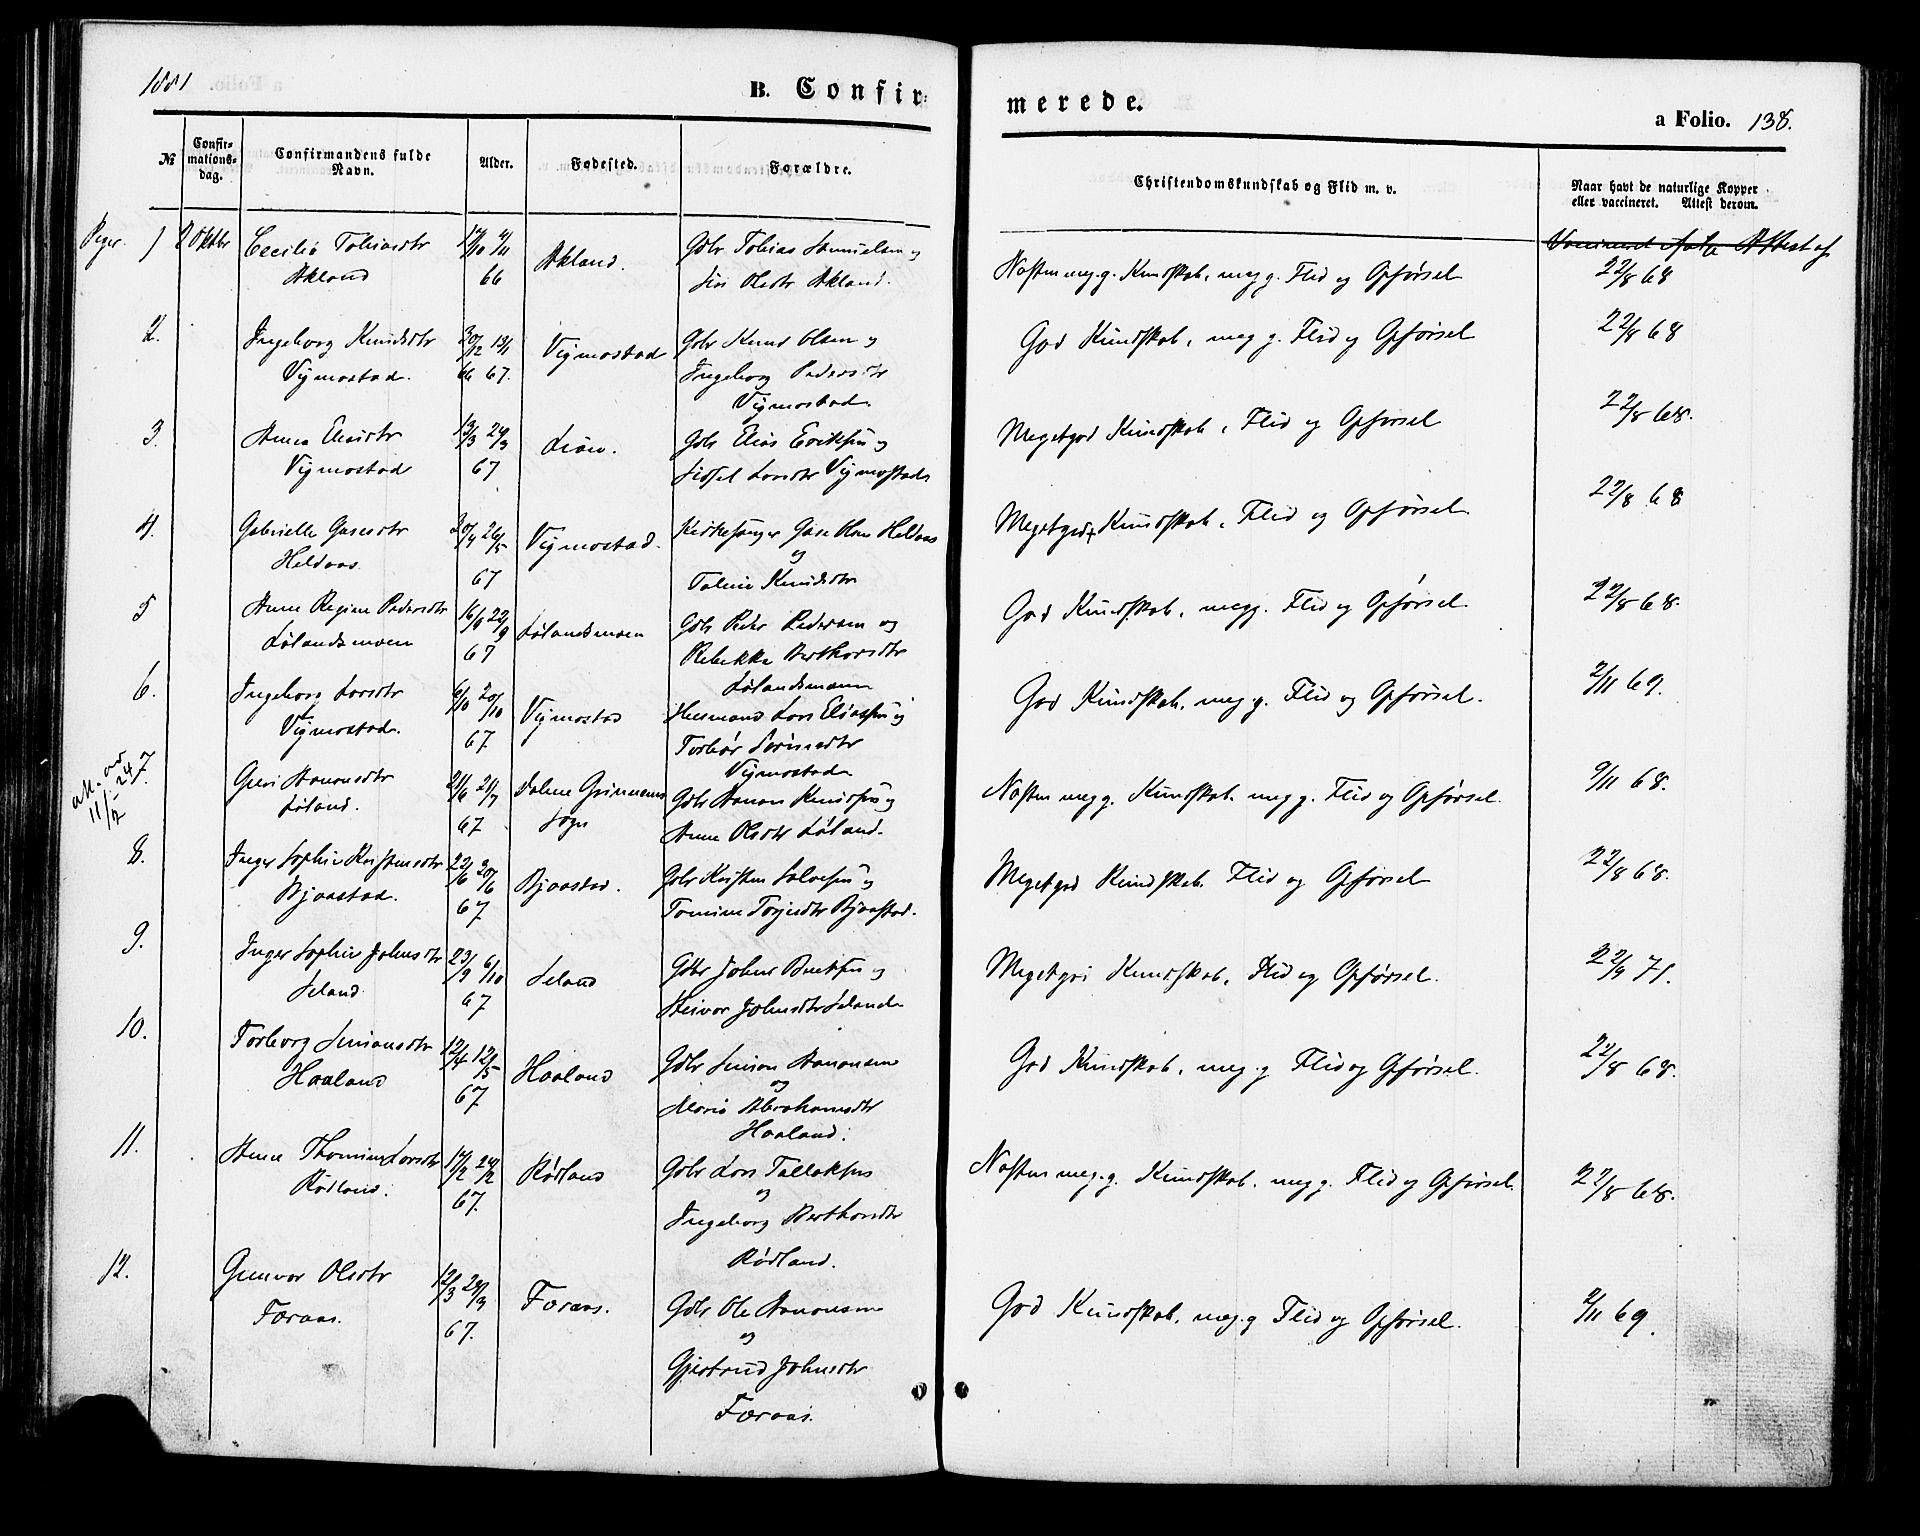 1881
B. Confir-
merede.
a Folio. 138.
№
Confir-
mations-
dag.
Confirmandens fulde
Navn.
Alder.
Fødested.
Forældre.
Christendomskundskab og Flid m. v.
Naar havt de naturlige Kopper
eller vaccineret. Attest derom.
Piger. 1 2 Oktbr Cecilie Tobiasdtr
Akland
66
Akland.
Gdbr Tobias Samuelsen og
Siri Olsdtr Akland.
Næsten meg. g. Kundskab, meg g. Flid og Opførsel
22/8 68
2. Ingeborg Knudsdtr
Vigmostad.
30/12 13/1
66 67.
Vigmostad
Gdbr Knud Olsen og
Ingeborg Pedersdtr
Vigmostad.
God Kundskab, meg g. Flid og Opførsel
22/8 68
3. Anna Eliasdtr
Vigmostad
13/3 24/3
67
Gdbr Elias Eriksen og
Sidsel Larsdtr Vigmostad
Megetgod Kundskab, Flid og Opførsel
22/8 68.
4. Gabrielle Gasesdtr
Heldaas.
20/4 26/5
67
Vigmostad.
Kirkesanger Gase Heldaas
og
Taline Knudsdtr
Megetgod Kundskab, Flid og Opførsel
22/8 68
5 Anne Regine Pedersdtr
Lølandsmoen
67
Lølandsmoen
Gdbr Peder Pedersen og
Rebekka Berthorsdtr
Lølandsmoen
God Kundskab, meg g. Flid og Opførsel
22/8 68.
6. Ingeborg Larsdtr
Vigmostad.
6/10 20/10
67.
Vigmostad
Husmand Lars Eliassen og
Torbør Simensdtr
Vigmostad
God Kundskab, meg g. Flid og Opførsel.
2/11 69.
7. Guri Aanonsdtr
Løland.
21/6 21/7
67
Sogn
Gdbr Aanon Knudsen og
Anne Olsdtr Løland.
Næsten meg g. Kundskab, meg g. Flid og Opførsel.
9/11 68.
8. Inger Sophie Kristensdtr
Bjaastad.
22/6 30/6
67
Bjaastad.
Gdbr Kristen Salvesen og
Tomine Torjusdtr Bjaastad.
Megetgod Kundskab, Flid og Opførsel
22/8 68.
9. Inger Sophie Johnsdtr
Seland
23/9 6/10
67
Seland
Gdbr John Berthsen og
Steinvor Johnsdtr Seland
Megetgod Kundskab, Flid og Opførsel.
22/9 71.
10. Torborg Simonsdtr
Haaland
12/4 12/5
67
Haaland
Gdbr Simon Aanonsen
og
Marie Abrahamsdtr
Haaland.
God Kundskab, meg. g Flid og Opførsel.
22/8 68.
11. Anne Thomine Larsdtr
Rødland.
17/2 24/2
67.
Rødland
Gdbr Lars Tallaksen
og
Ingeborg Berthorsdtr
Rødland.
Næsten meg. g. Kundskab, meg g. Flid og Opførsel.
22/8 68.
12. Gunvor Olsdtr
Foraas.
12/3 24/3
67.
Foraas.
Gdbr Ole Aanonsen
og
Gjertrud Johnsdtr
Foraas.
God Kundskab, meg. g Flid og Opførsel.
2/11 69.